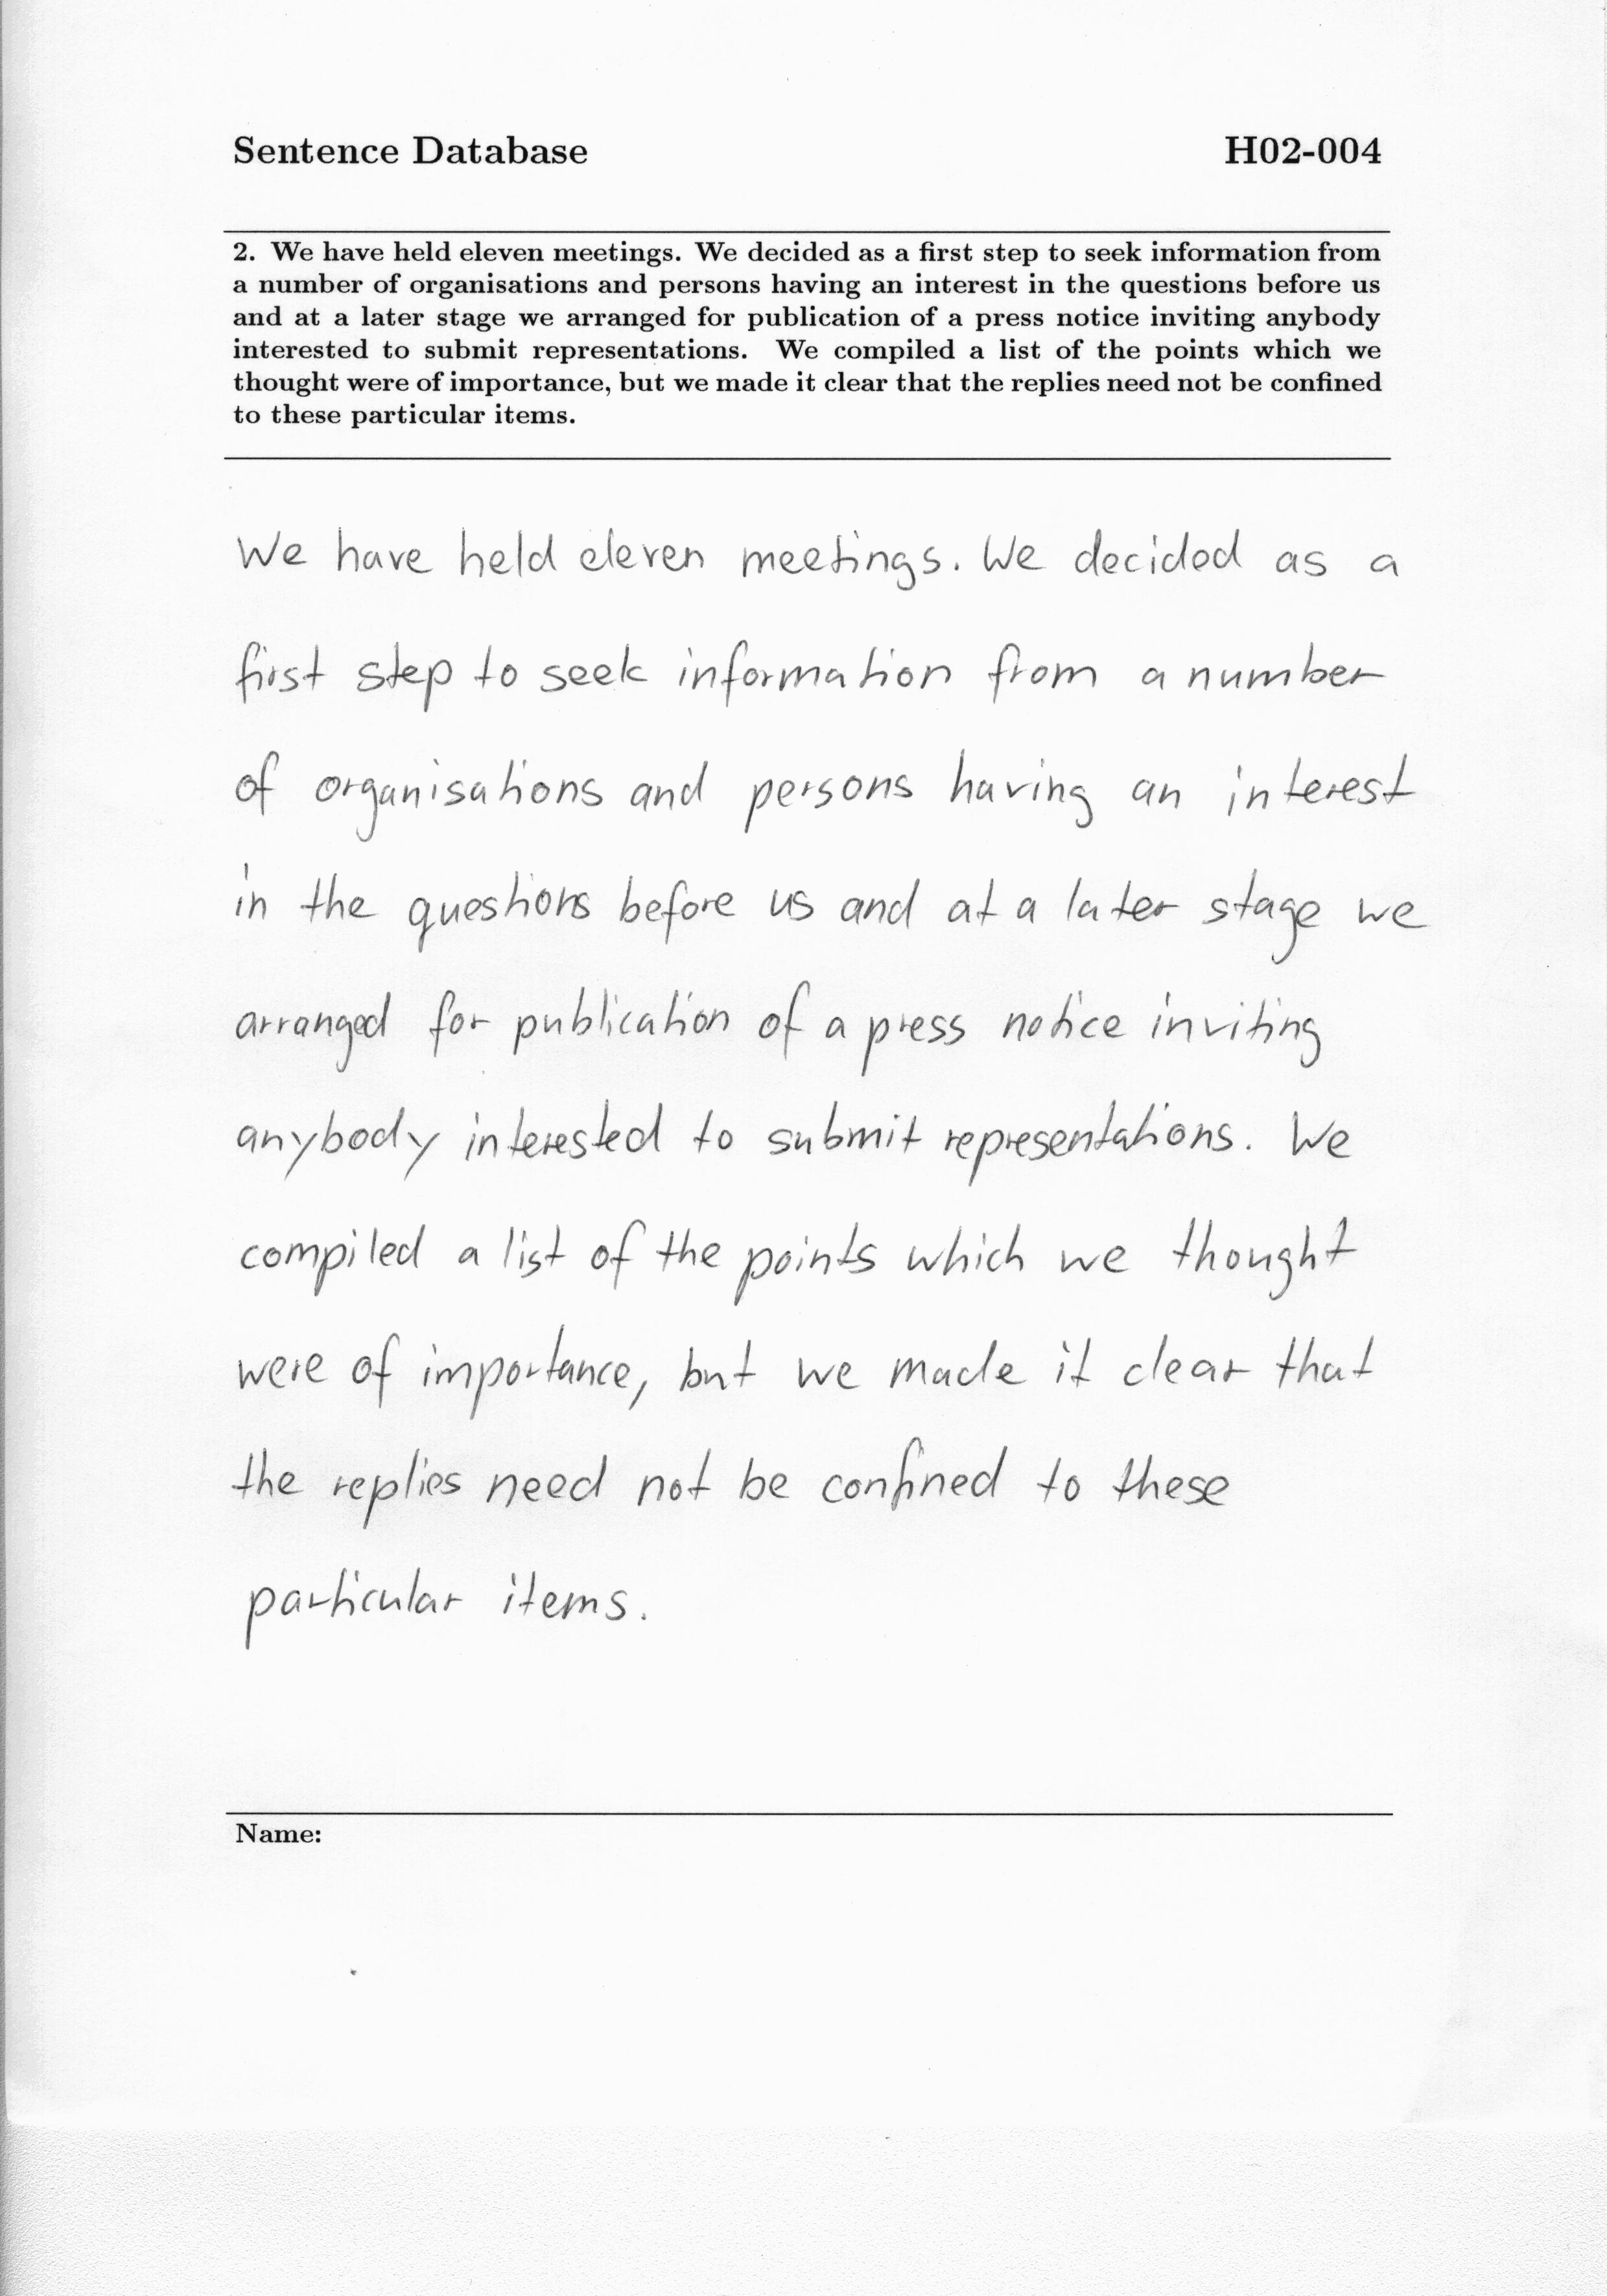 Sentence Database H02-004
2. We have held eleven meetings. We decided as a first step to seek information from
a number of organisations and persons having an interest in the questions before us
and at a later stage we arranged for publication of a press notice inviting anybody
interested to submit representations. We compiled a list of the points which we
thought were of importance, but we made it clear that the replies need not be confined
to these particular items.
We have held eleven meetings. We decided as a
first step to seek information from a number
of organisations and persons having an interest
in the questions before us and at a later stage we
arranged for publication of a press notice inviting
anybody interested to submit representations. We
compiled a list of the points which we thought
were of importance, but we made it clear that
the replies need not be confined to these
particular items.
Name: